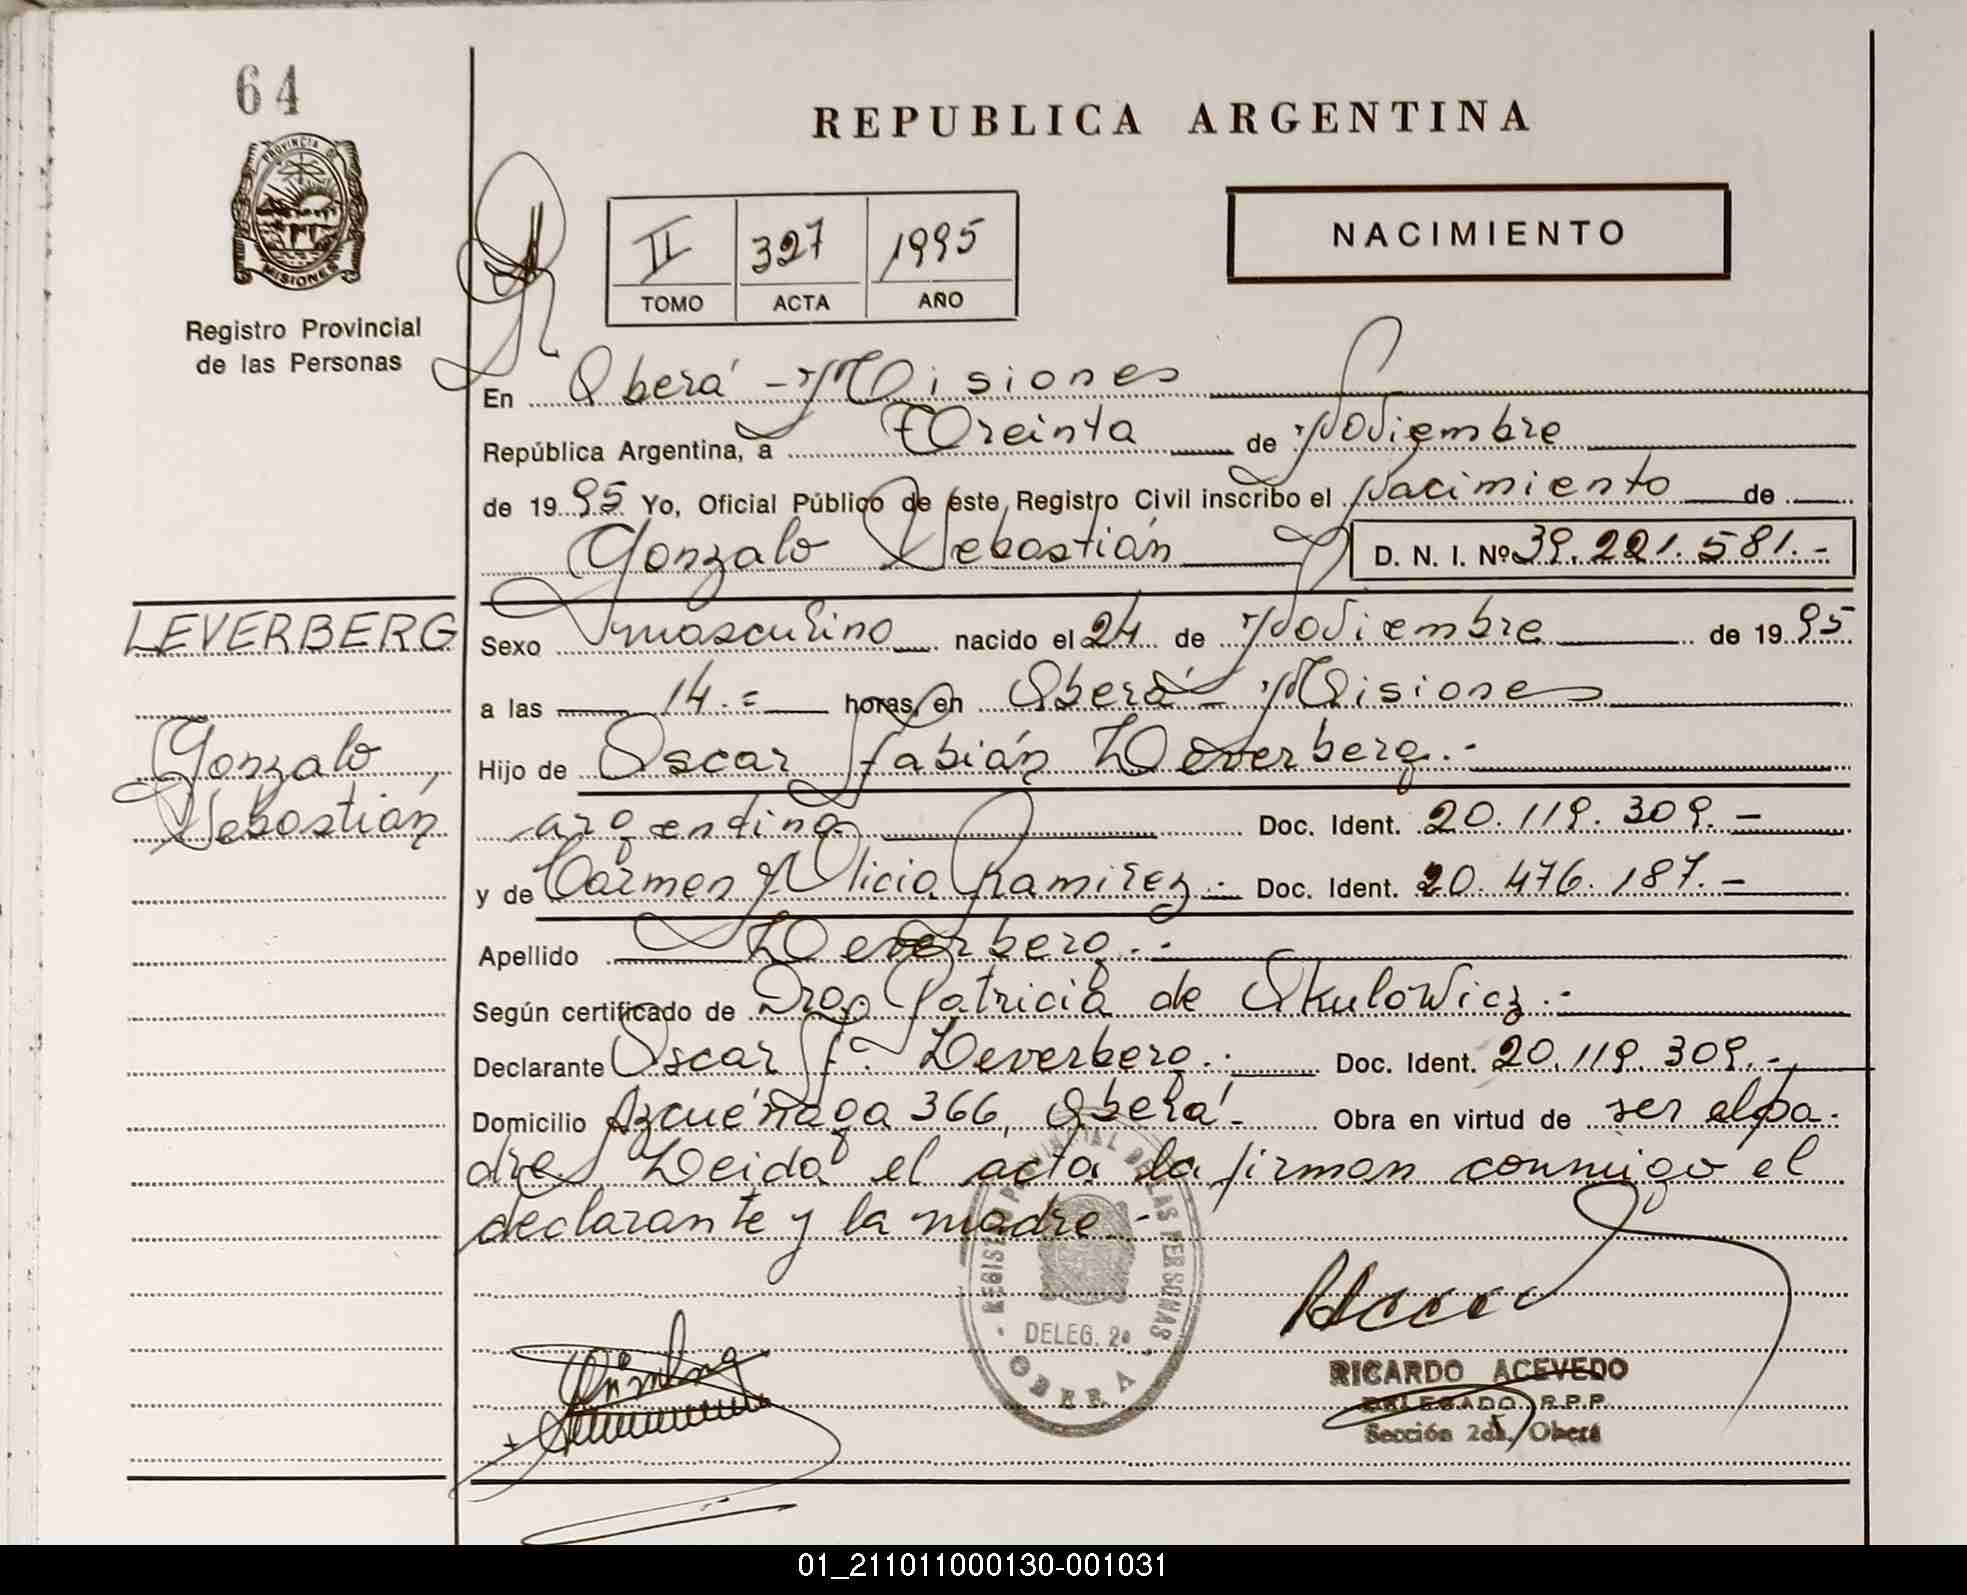 64
PROVINCIA DE
MISIONES
Registro Provincial
de las Personas
REPUBLICA ARGENTINA
II 327 1995
TOMO ACTA AÑO
NACIMIENTO
En Oberá - Misiones
República Argentina, a Treinta de Noviembre
de 1995 Yo, Oficial Público de este Registro Civil inscribo el Nacimiento de
Gonzalo Sebastián D. N. I. Nº 39.221.581.-
LEVERBERG
Gonzalo
Sebastián
Sexo masculino nacido el 24 de Noviembre de 1995
a las 14.= horas, en Oberá - Misiones
Hijo de Oscar Fabián Leverberg.-
argentino Doc. Ident. 20.119.309.-
y de Carmen Alicia Ramirez.- Doc. Ident. 20.476.187.-
Apellido Leverberg.-
Según certificado de Dra. Patricia de Skulowicz.-
Declarante Oscar F. Leverberg.- Doc. Ident. 20.119.309.-
Domicilio Azcuénaga 366, Oberá.- Obra en virtud de ser el pa-
dre. Leida el acta la firman conmigo el
declarante y la madre.-
REGISTRO PROVINCIAL DE LAS PERSONAS
DELEG. 2a
OBERA
RICARDO ACEVEDO
DELEGADO R.P.P.
Sección 2da, Oberá
01_211011000130-001031